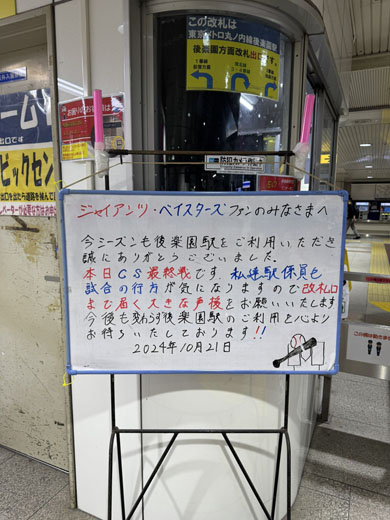 この改札は
東京メトロ丸ノ内線後楽園駅
後楽園方面改札出口です
ドーム
ビックセン
防犯カメラ作動中
ジャイアンツ・ベイスターズファンのみなさまへ
今シーズンも後楽園駅をご利用いただき
誠にありがとうございました。
本日CS最終戦です。私達駅係員も
試合の行方が気になりますので改札口
まで届く大きな声援をお願いいたします
今後も変わらず後楽園駅のご利用を心より
お待ちいたしております!!
2024年10月21日